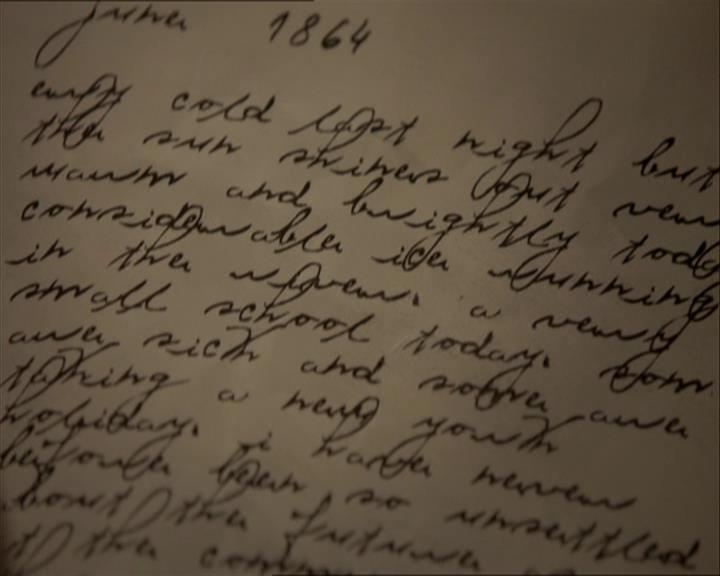 June 1864
cold last night but
the sun shines out very
warm and brightly today
considerable ice running
in the river. a very
small school today. som
are sick and some are
taking a new year
holiday. i have never
before been so unsettled
bout the future
of the